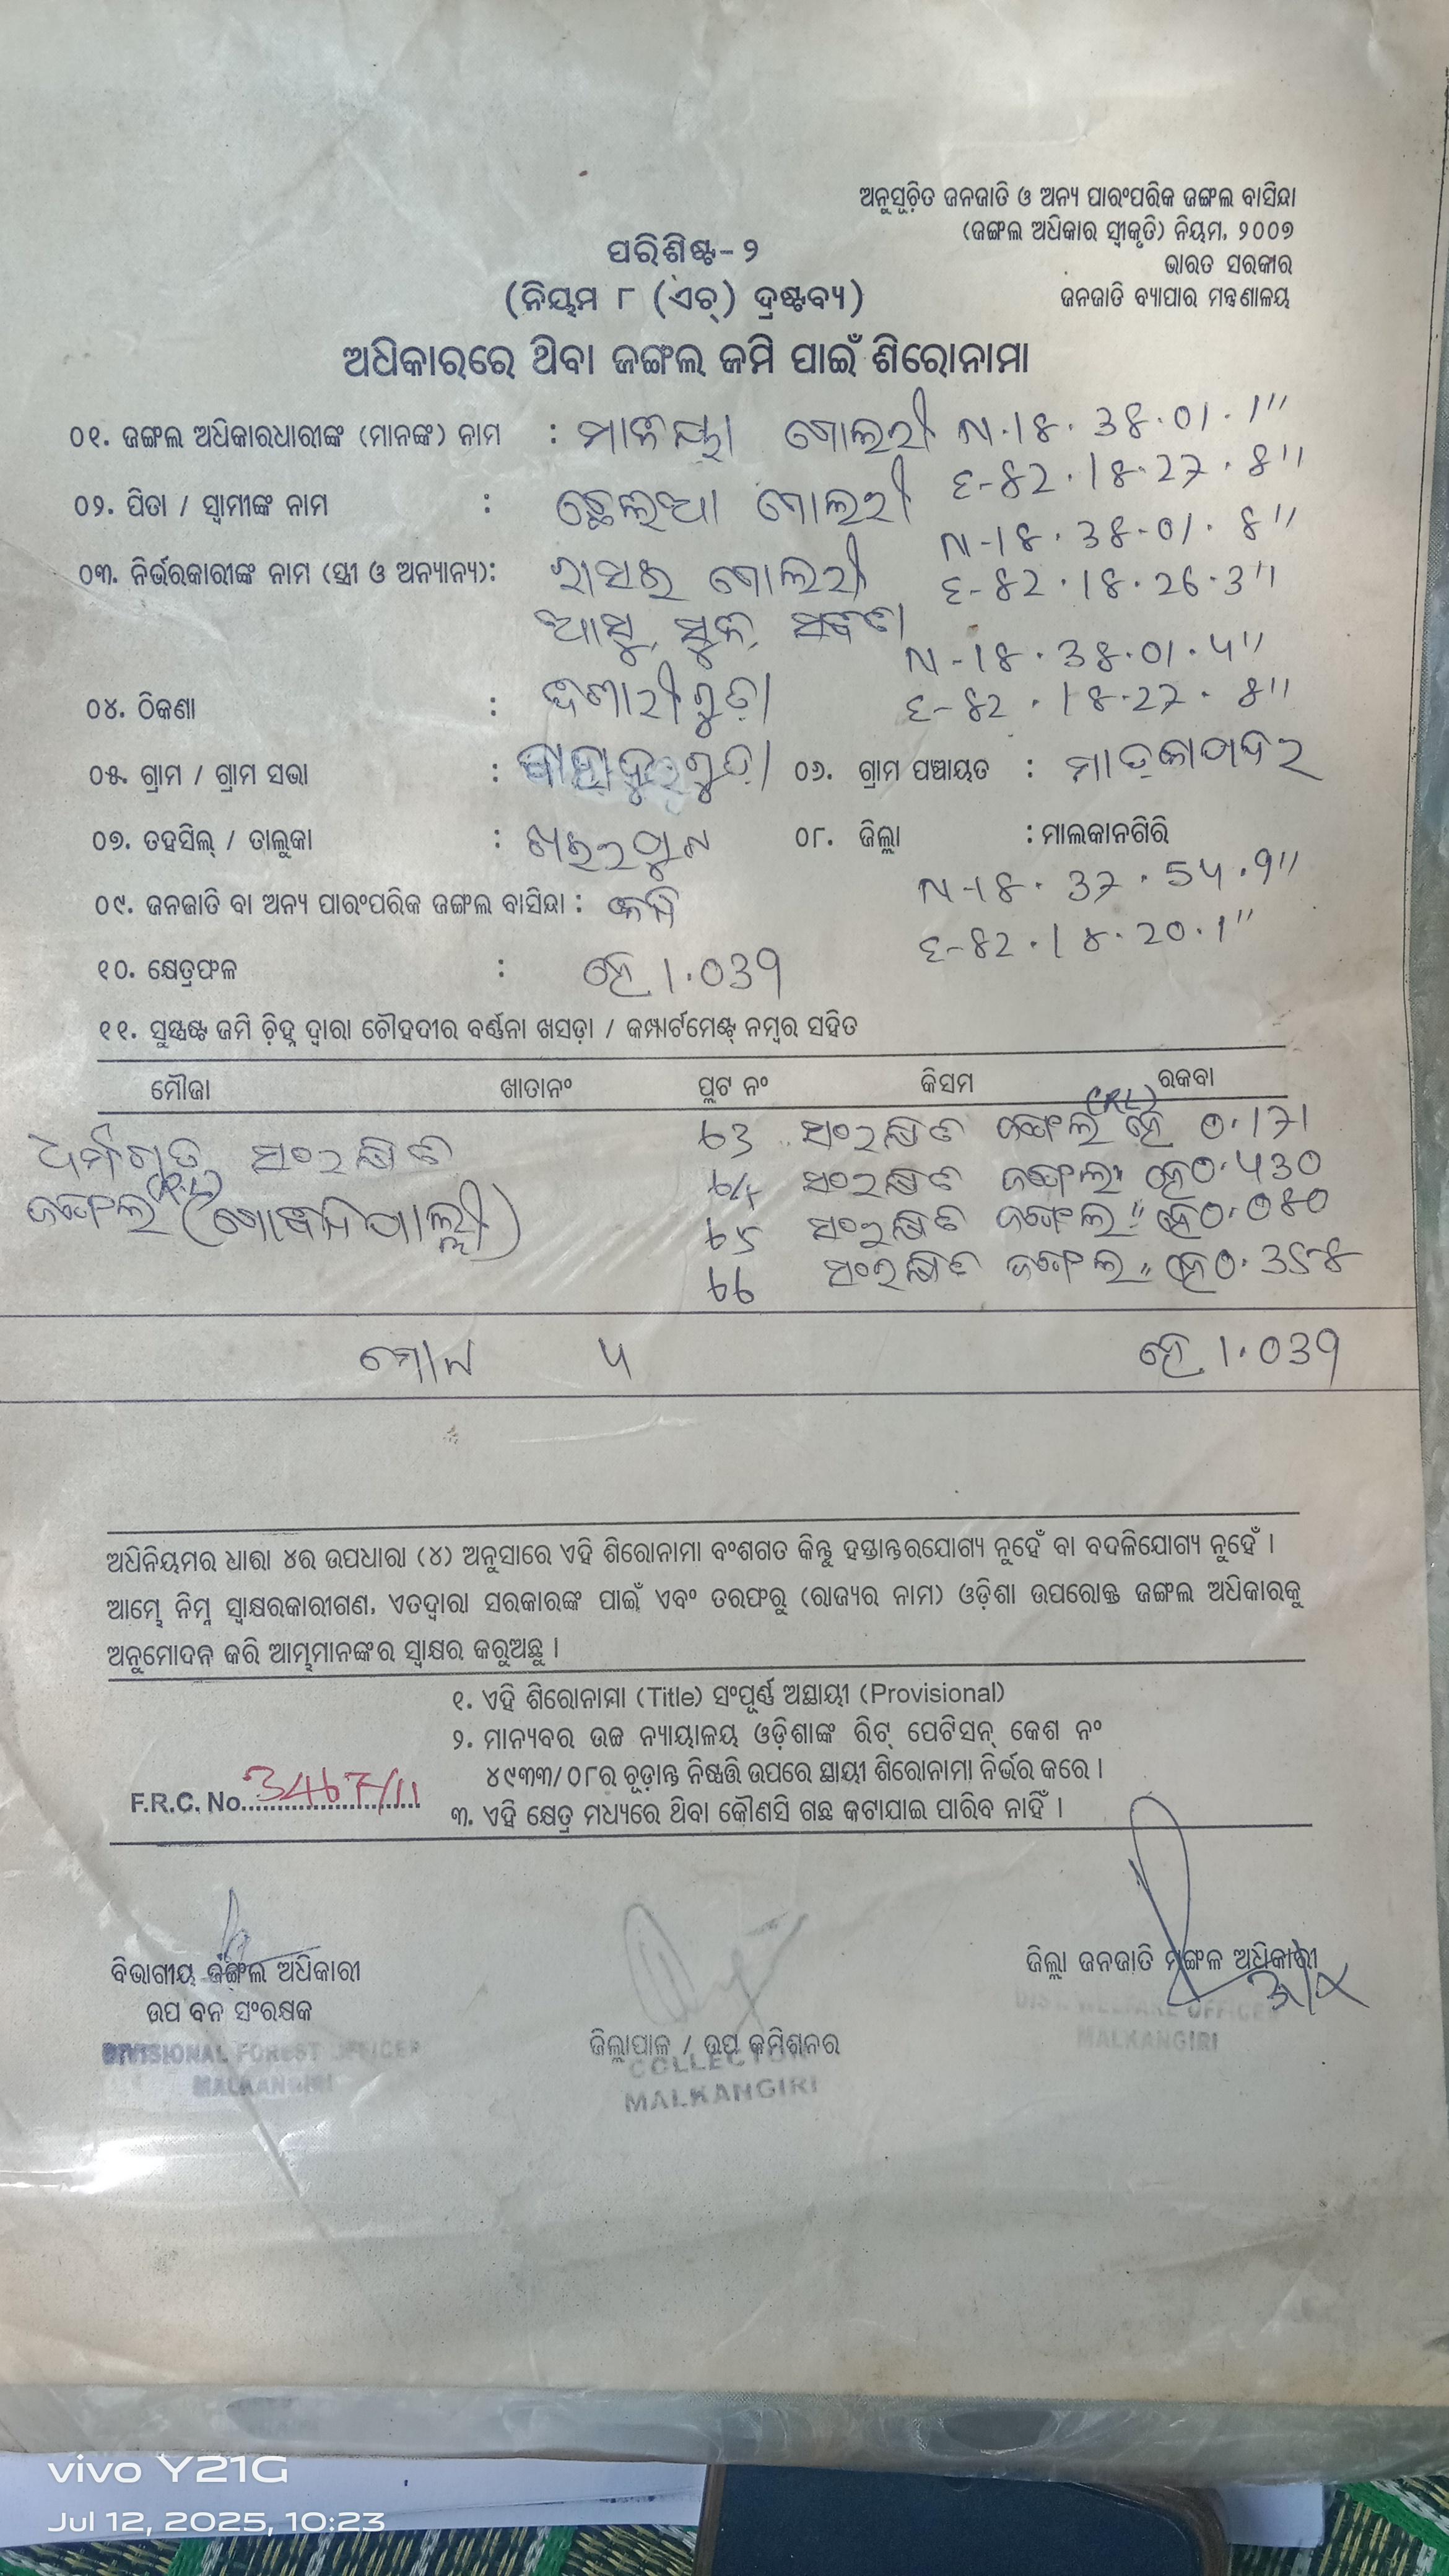 ଅନୁସୂଚିତ ଜନଜାତି ଓ ଅନ୍ୟ ପାରଂପରିକ ଜଙ୍ଗଲ ବାସିନ୍ଦା
(ଜଙ୍ଗଲ ଅଧିକାର ସ୍ୱୀକୃତି) ନିୟମ, ୨୦୦୭
ଭାରତ ସରକାର
ଜନଜାତି ବ୍ୟାପାର ମନ୍ତ୍ରଣାଳୟ
ପରିଶିଷ୍ଟ-୨
(ନିୟମ ୮ (ଏଚ୍) ଦ୍ରଷ୍ଟବ୍ୟ)
ଅଧିକାରରେ ଥିବା ଜଙ୍ଗଲ ଜମି ପାଇଁ ଶିରୋନାମା
୦୧. ଜଙ୍ଗଲ ଅଧିକାରଧାରୀଙ୍କ (ମାନଙ୍କ) ନାମ : ଗୋଲରୀ N-18.38.01.1"
E-82.18.27.8"
୦୨. ପିତା / ସ୍ୱାମୀଙ୍କ ନାମ : ଗୋଲରୀ
N-18.38-01.8"
୦୩. ନିର୍ଭରକାରୀଙ୍କ ନାମ (ସ୍ତ୍ରୀ ଓ ଅନ୍ୟାନ୍ୟ): ଗୋଲରୀ E-82.18.26.3"
N-18.38.01.4"
୦୪. ଠିକଣା : E-82.18.27.8"
୦୫. ଗ୍ରାମ / ଗ୍ରାମ ସଭା : ୦୬. ଗ୍ରାମ ପଞ୍ଚାୟତ :
୦୭. ତହସିଲ୍ / ତାଲୁକା : ଖଇରପୁଟ ୦୮. ଜିଲ୍ଲା : ମାଲକାନଗିରି
N-18.37.54.9"
୦୯. ଜନଜାତି ବା ଅନ୍ୟ ପାରଂପରିକ ଜଙ୍ଗଲ ବାସିନ୍ଦା :
E-82.18.20.1"
୧୦. କ୍ଷେତ୍ରଫଳ : ହେ 1.039
୧୧. ସୁସ୍ପଷ୍ଟ ଜମି ଚିହ୍ନ ଦ୍ୱାରା ଚୌହଦୀର ବର୍ଣ୍ଣନା ଖସଡ଼ା / କମ୍ପାର୍ଟମେଣ୍ଟ୍ ନମ୍ବର ସହିତ
ମୌଜା ଖାତାନଂ ପ୍ଲଟ ନଂ କିସମ ରକବା
ସଂରକ୍ଷିତ 63 ସଂରକ୍ଷିତ ଜଙ୍ଗଲ ହେ 0.171
ଜଙ୍ଗଲ 64 ସଂରକ୍ଷିତ ଜଙ୍ଗଲ " ହେ 0.430
65 ସଂରକ୍ଷିତ ଜଙ୍ଗଲ " ହେ 0.080
66 ସଂରକ୍ଷିତ ଜଙ୍ଗଲ " ହେ 0.358
ମୋଟ 4 ହେ 1.039
ଅଧିନିୟମର ଧାରା ୪ର ଉପଧାରା (୪) ଅନୁସାରେ ଏହି ଶିରୋନାମା ବଂଶଗତ କିନ୍ତୁ ହସ୍ତାନ୍ତରଯୋଗ୍ୟ ନୁହେଁ ବା ବଦଳିଯୋଗ୍ୟ ନୁହେଁ ।
ଆମ୍ଭେ ନିମ୍ନ ସ୍ୱାକ୍ଷରକାରୀଗଣ, ଏତଦ୍ୱାରା ସରକାରଙ୍କ ପାଇଁ ଏବଂ ତରଫରୁ (ରାଜ୍ୟର ନାମ) ଓଡ଼ିଶା ଉପରୋକ୍ତ ଜଙ୍ଗଲ ଅଧିକାରକୁ
ଅନୁମୋଦନ କରି ଆମ୍ଭମାନଙ୍କର ସ୍ୱାକ୍ଷର କରୁଅଛୁ ।
୧. ଏହି ଶିରୋନାମା (Title) ସଂପୂର୍ଣ୍ଣ ଅସ୍ଥାୟୀ (Provisional)
୨. ମାନ୍ୟବର ଉଚ୍ଚ ନ୍ୟାୟାଳୟ ଓଡ଼ିଶାଙ୍କ ରିଟ୍ ପେଟିସନ୍ କେଶ ନଂ
୪୯୩୩/୦୮ର ଚୂଡ଼ାନ୍ତ ନିଷ୍ପତ୍ତି ଉପରେ ସ୍ଥାୟୀ ଶିରୋନାମା ନିର୍ଭର କରେ ।
F.R.C. No. 3467/11
୩. ଏହି କ୍ଷେତ୍ର ମଧ୍ୟରେ ଥିବା କୌଣସି ଗଛ କଟାଯାଇ ପାରିବ ନାହିଁ ।
ବିଭାଗୀୟ ଜଙ୍ଗଲ ଅଧିକାରୀ
ଉପ ବନ ସଂରକ୍ଷକ
DIVISIONAL FOREST OFFICER
MALKANGIRI
ଜିଲ୍ଲାପାଳ / ଉପ କମିଶନର
COLLECTOR
MALKANGIRI
ଜିଲ୍ଲା ଜନଜାତି ମଙ୍ଗଳ ଅଧିକାରୀ
DIST. WELFARE OFFICER
MALKANGIRI
vivo Y21G
Jul 12, 2025, 10:23